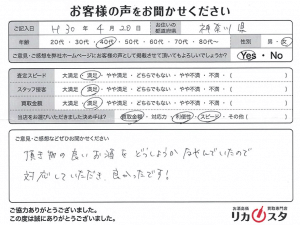 お客様の声をお聞かせください
ご記入日 H30年 4月 20日 お住いの都道府県 神奈川県
年齢 20代・30代・40代・50代・60代・70代・80代~ 性別 男・女
ご意見・ご感想を弊社ホームページにお客様の声として掲載させて頂いてもよろしいでしょうか? Yes・No
査定スピード 大満足・満足・やや満足・どちらでもない・やや不満・不満・( )
スタッフ接客 大満足・満足・やや満足・どちらでもない・やや不満・不満・( )
買取金額 大満足・満足・やや満足・どちらでもない・やや不満・不満・( )
当店をお選びいただきました決め手は? 買取金額・対応力・利便性・スピード・その他( )
ご意見・ご感想などぜひお聞かせください。
頂き物の良いお酒をどうしようかなやんでいたので
対応していただき、良かったです!
ご協力ありがとうございました。
この度は誠にありがとうございました。
お酒高価買取専門店
リカスタ